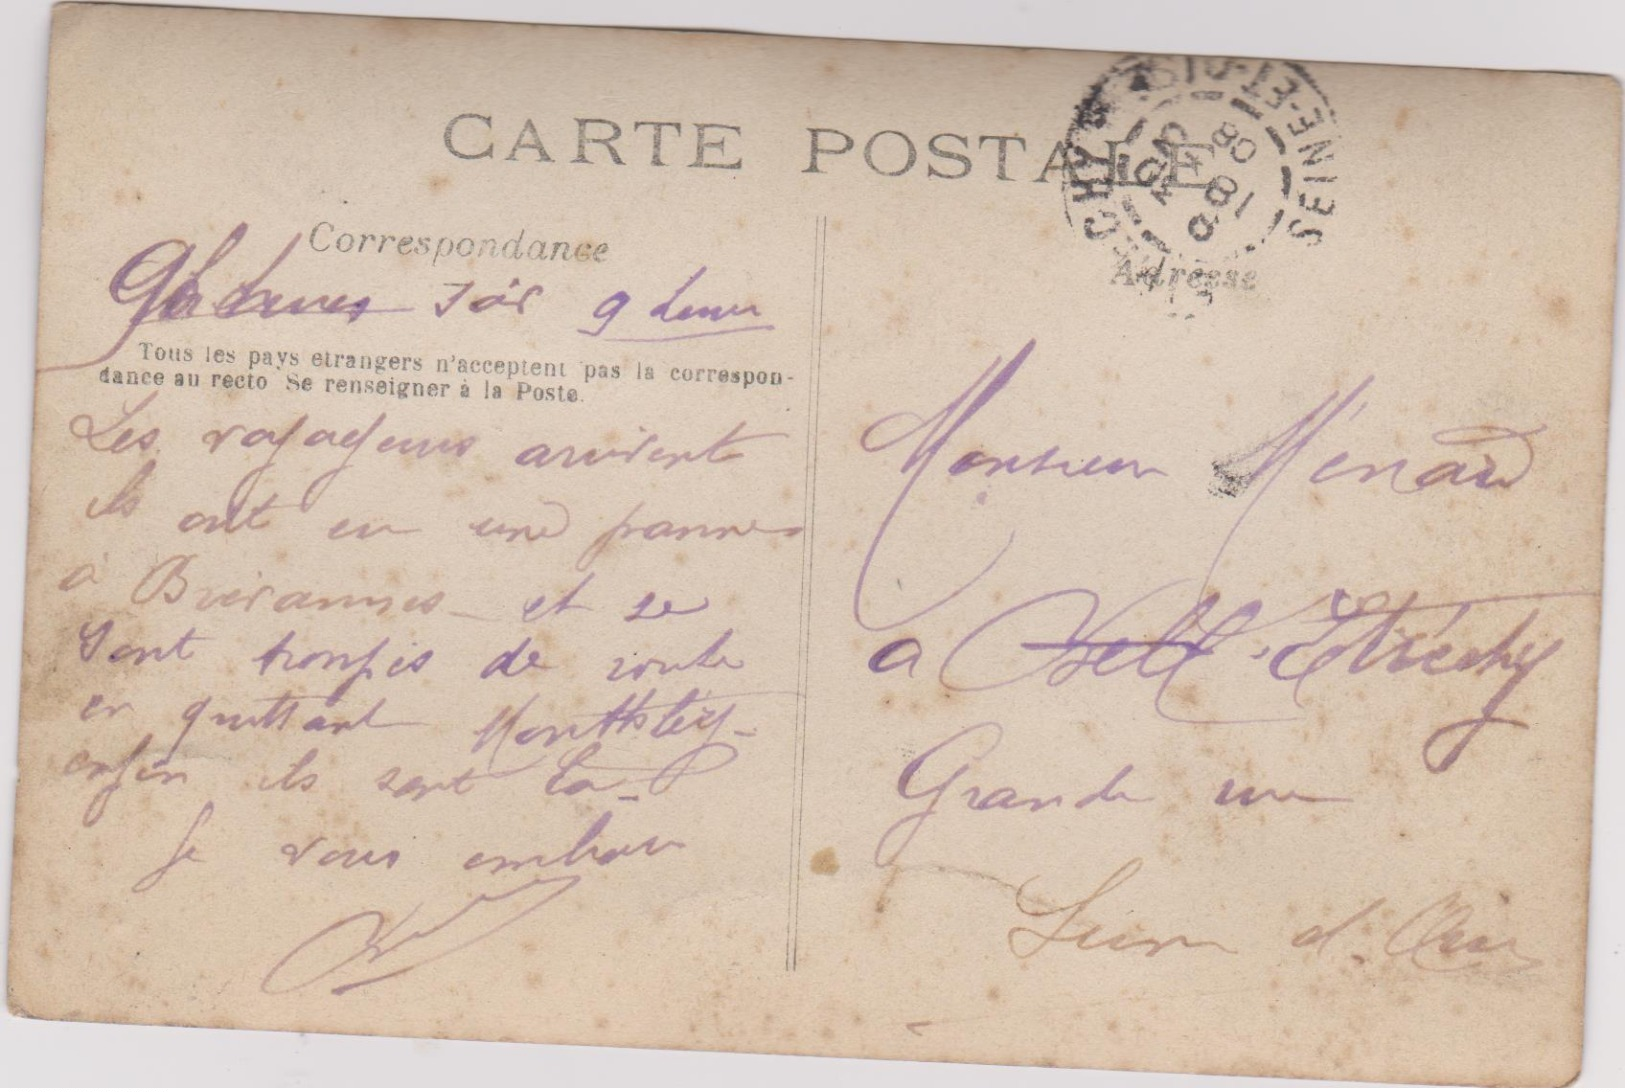 CARTE POSTALE
Correspondance
soir 9 heures
Tous les pays etrangers n'acceptent pas la correspon-
dance au recto Se renseigner à la Poste.
Les voyageurs arrivent
ils ont eu une panne
à et se
sont trompés de route
en quittant Montlhéry -
enfin ils sont là -
Je vous embrasse
SEINE-ET-OISE
18
08
Adresse
Monsieur Ménard
à Etréchy
Grande rue
Seine et Oise